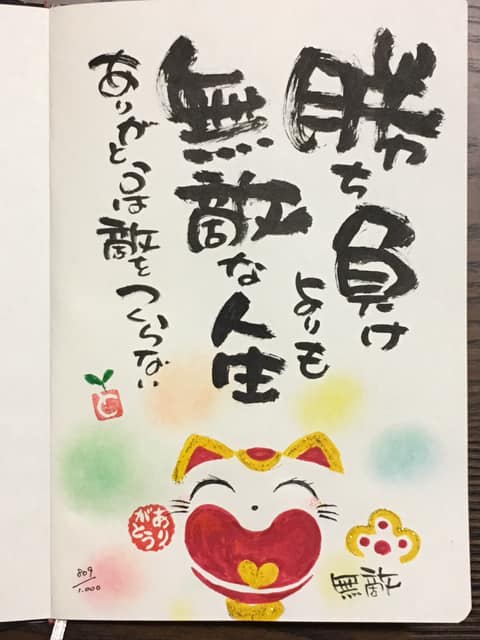 勝ち負け
よりも
無敵な人生
ありがとうは敵をつくらない
ありがとう
無敵
809
1.000